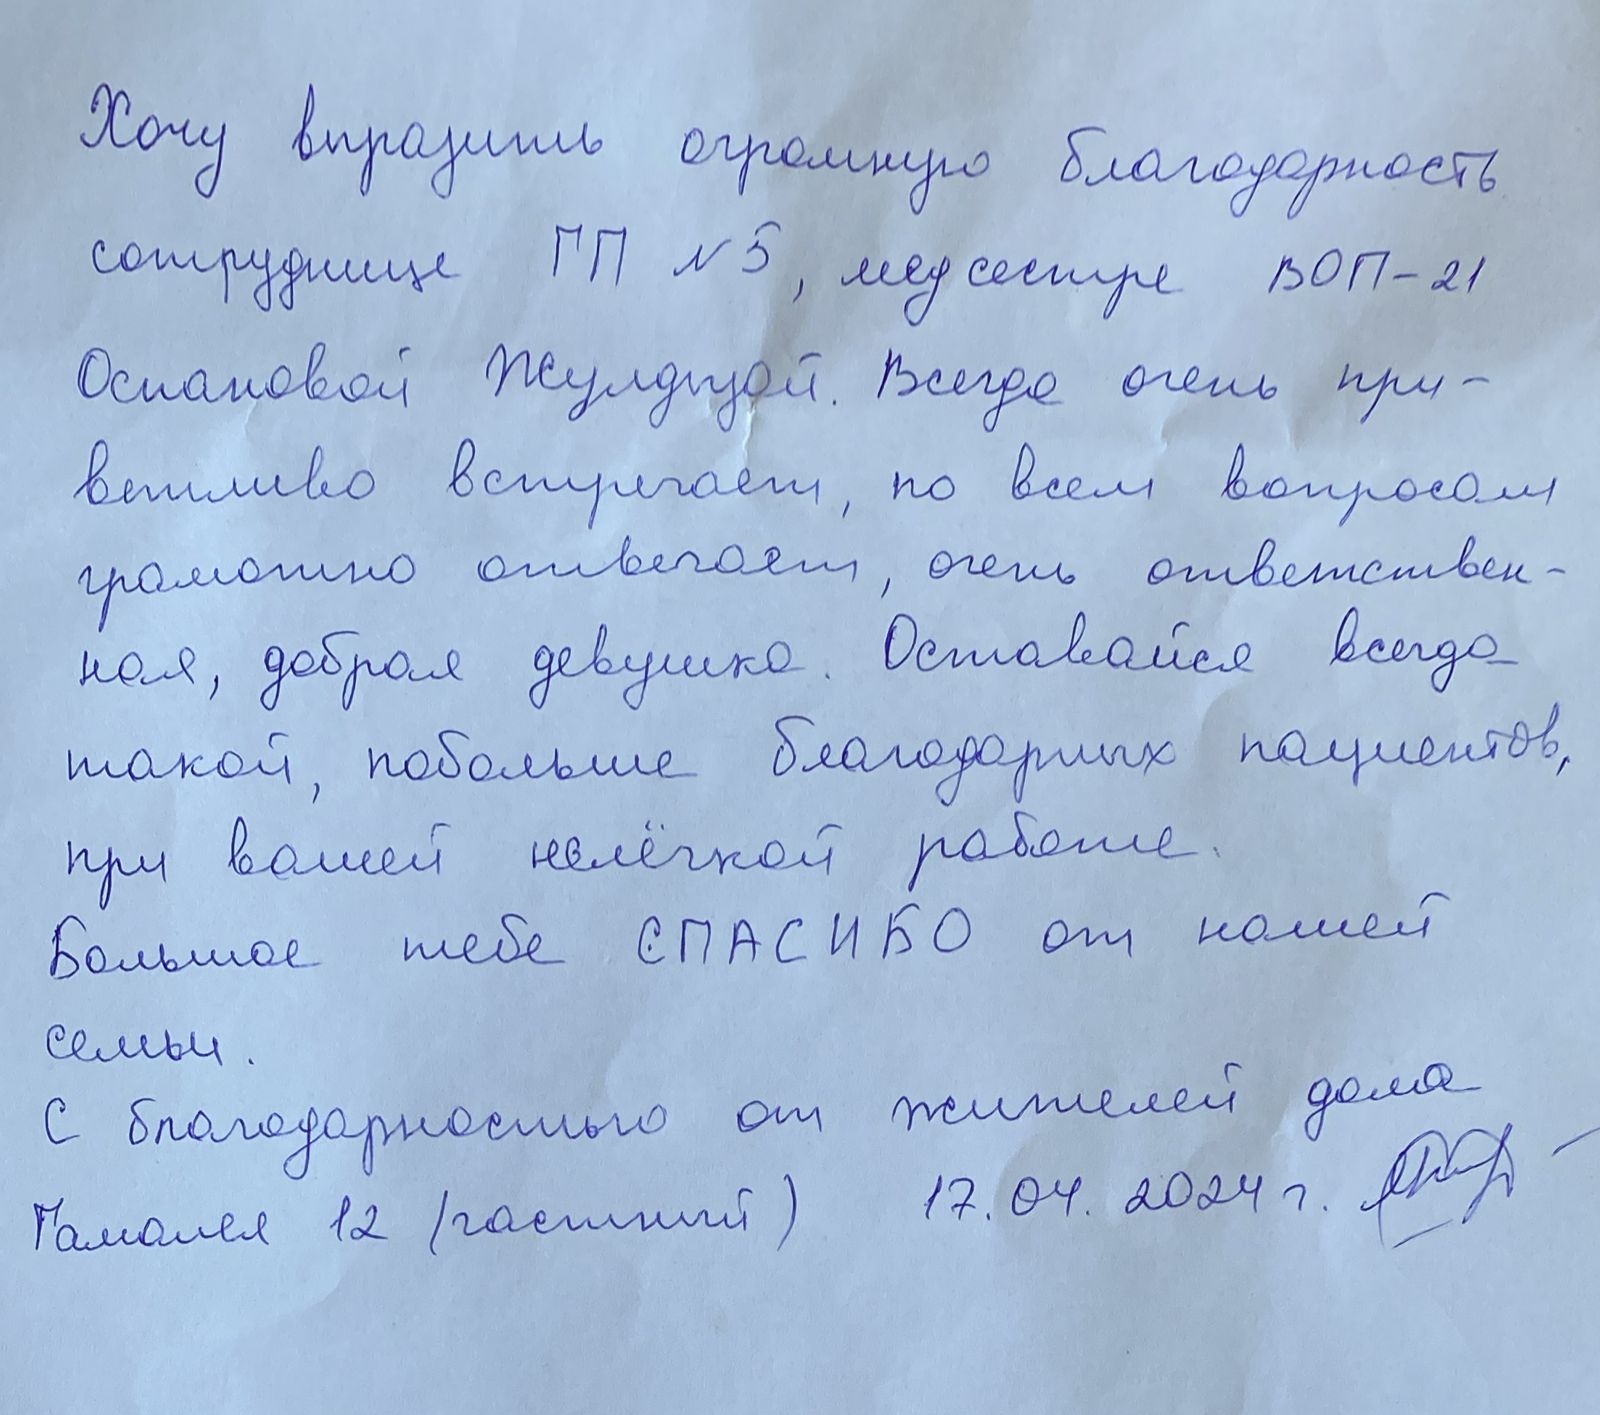 Хочу выразить огромную благодарность
сотруднице ГП N5, медсестре ВОП-21
Оспановой Жулдызай. Всегда очень при-
ветливо встречает, по всем вопросам
грамотно отвечает, очень ответствен-
ная, добрая девушка. Оставайся всегда
такой, побольше благодарных пациентов,
при вашей нелёгкой работе.
Большое тебе СПАСИБО от нашей
семьи.
С благодарностью от жителей дома
Гамалея 12 (частный) 17.04.2024 г.